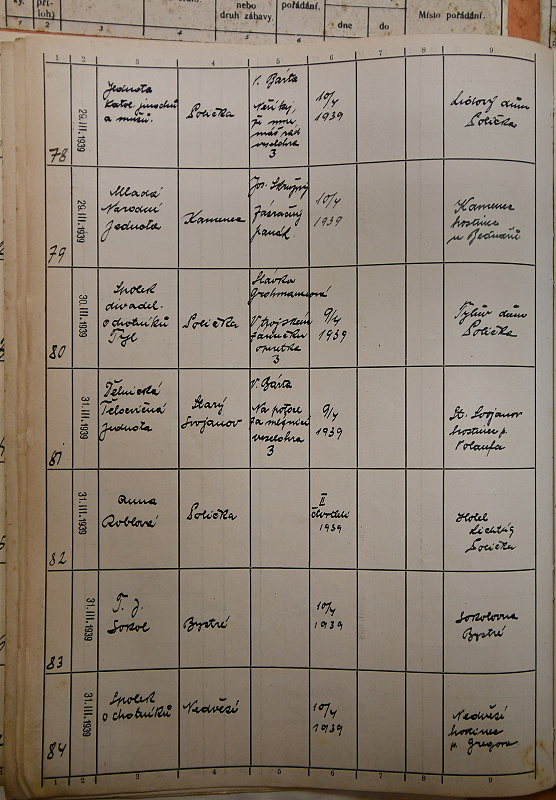 nebo
pořádání.
druh zábavy.
dne
do
Místo pořádání.
1 2 3 4 5 6 7 8 9
78
29.III.1939
Jednota
katol. jinochů
a mužů.
Polička
V. Bárta
Neříkej,
že mne
máš rád
veselohra
3
10/4
1939
Lidový dům
Polička
79
29.III.1939
Mladá
Národní
Jednota
Kamenec
Jos. Skružný
Zázračný
panák.
10/4
1939
Kamenec
hostinec
u Bednářů
80
30.III.1939
Spolek
divadel.
ochotníků
Tyl
Polička
Slávka
Grohmannová
V tyrolském
zámečku
operetka
3
9/4
1939
Tylův dům
Polička
81
31.III.1939
Dělnická
Tělocvičná
Jednota
Starý
Svojanov
V. Bárta
Na potoce
za mlýnicí
veselohra
3
9/4
1939
St. Svojanov
hostinec p.
Volaufa
82
31.III.1939
Anna
Roblová
Polička
II
čtvrtletí
1939
Hotel
Polička
83
31.III.1939
T. j.
Sokol
Bystré
10/4
1939
Sokolovna
Bystré
84
31.III.1939
Spolek
ochotníků
Nedvězí
10/4
1939
Nedvězí
hostinec
p. Gregora
1 2 3 4 5 6 7 8 9